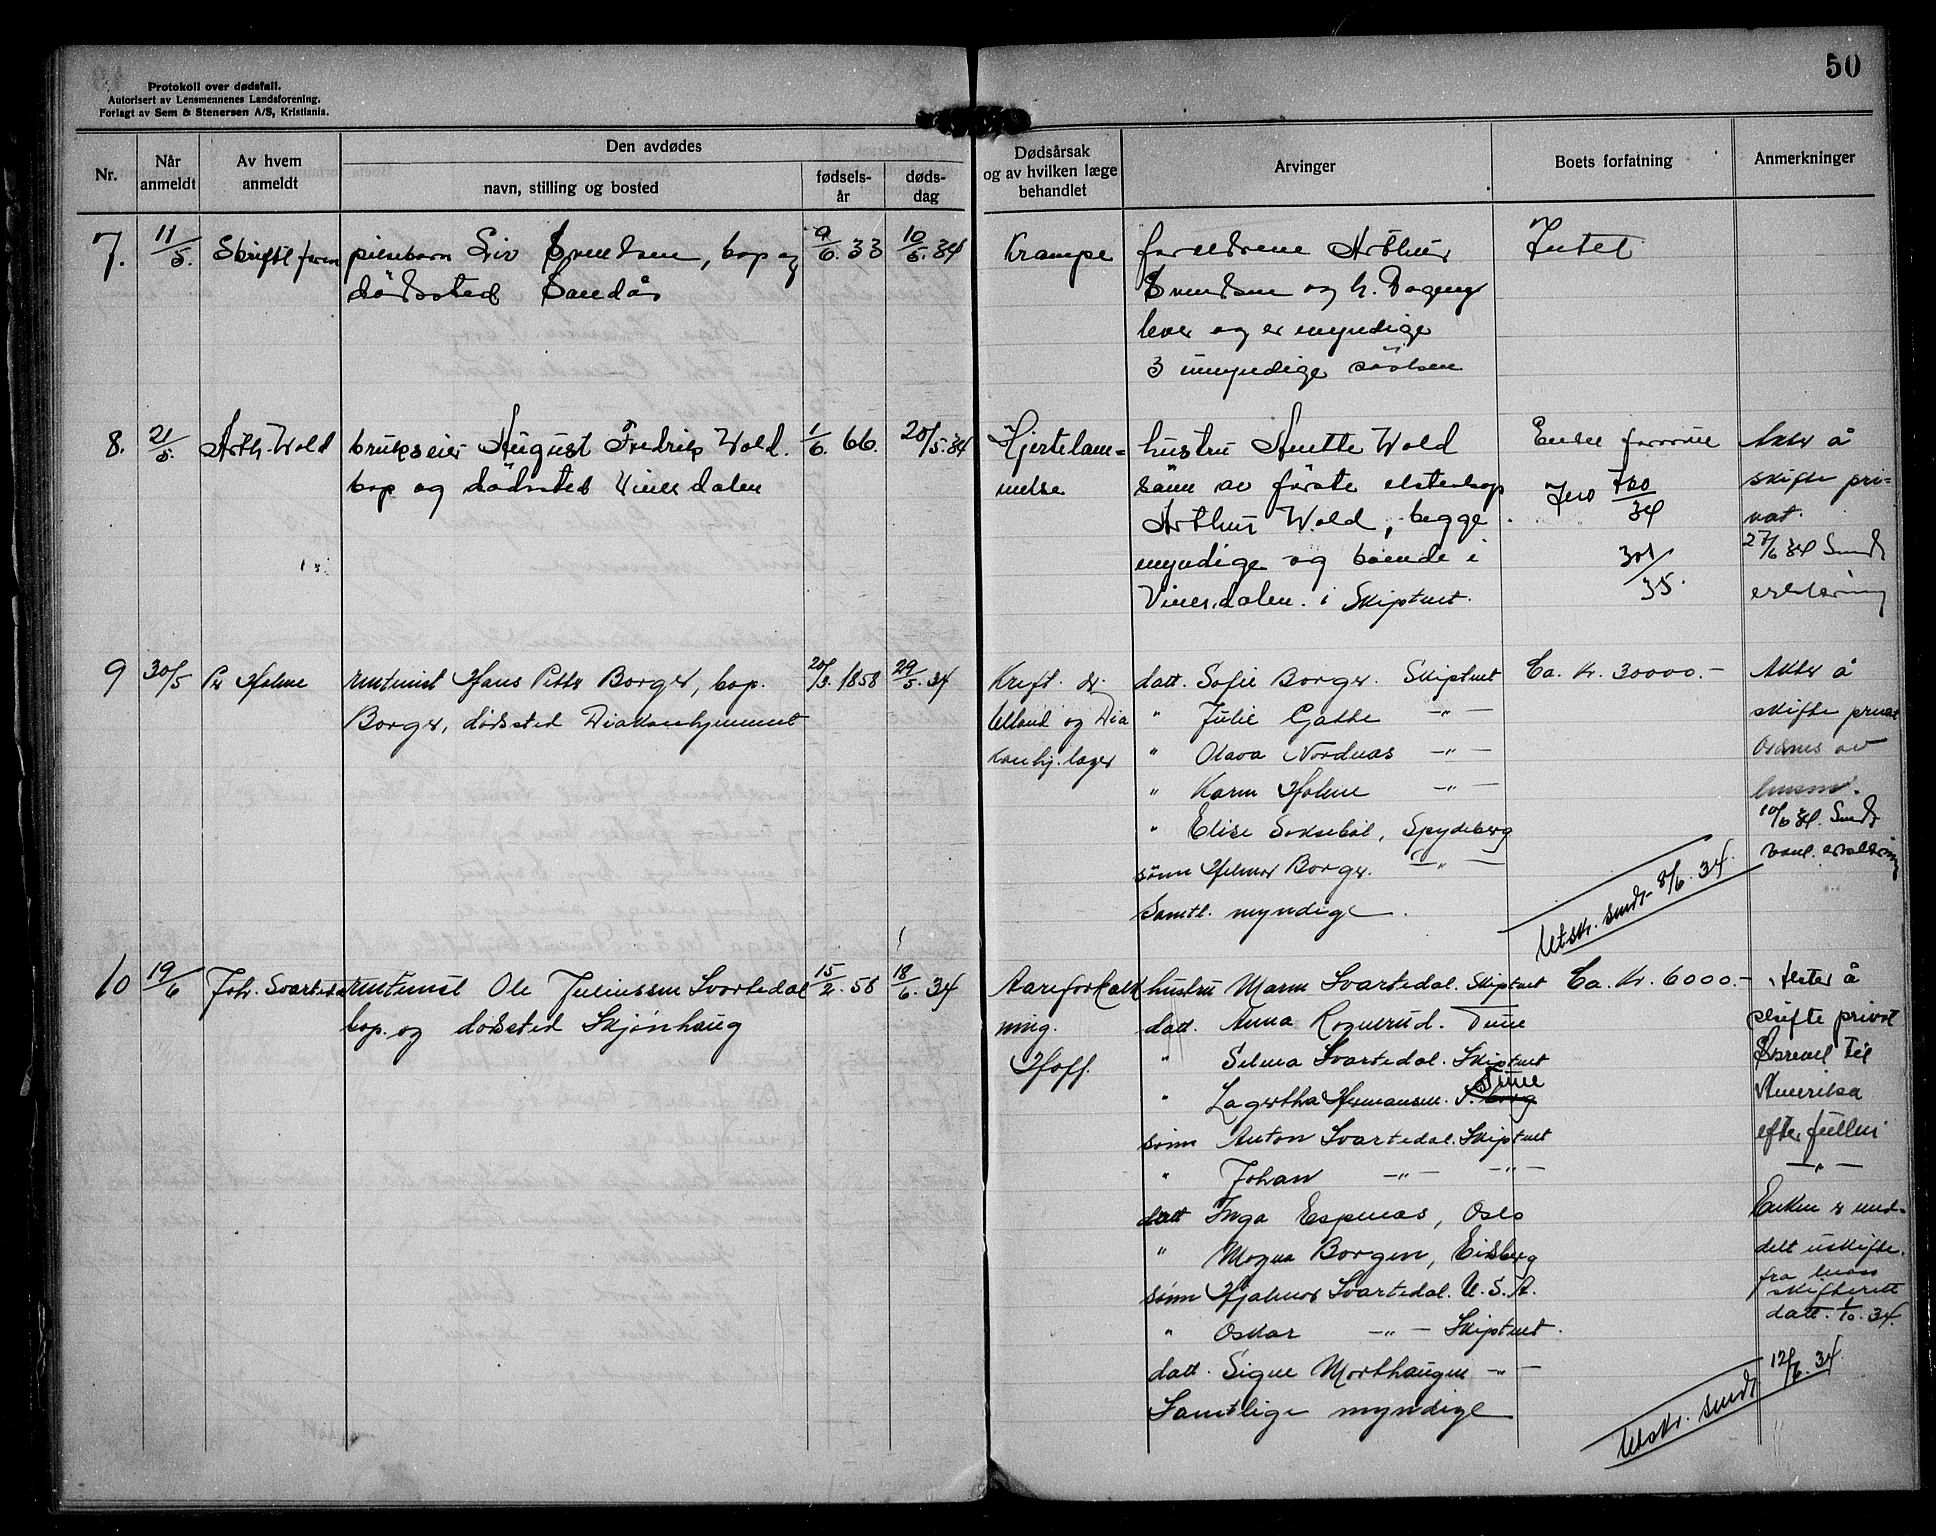 50
Protokoll over dødsfall.
Autorisert av Lensmennenes Landsforening.
Forlagt av Sem & Stenersen A/S, Kristiania.
Nr.
Når anmeldt
Av hvem anmeldt
Den avdødes
navn, stilling og bosted
fødsels-år
døds-dag
Dødsårsak og av hvilken læge behandlet
Arvinger
Boets forfatning
Anmerkninger
7. 11/5. Skriftl. pikebarn Liv Svendsen, bop og 9/6. 33 10/5. 34
dødssted Sandås
Krampe
foreldrene Arthur
Svendsen og h. Dagny
lever og er myndige
3 umyndige søsken
Intet
8. 21/5. Arth. Wold brukseier August Fredrik Wold. 1/6. 66. 20/5. 34
bop og dødssted Vines dalen
Hjertelam=
melse
hustru Anette Wold
sønn av første ekteskap
Arthur Wold, begge
myndige og boende i
Vines.dalen. i Skiptvet.
Enke
34
301/35.
Akter å
skifte pri-
vat.
27/6 34 Sendt
erklæring
9 30/5 Pr Holme rentenist Hans Petter Borger, bop. 20/3. 1858 29/5. 34
Borger, dødssted Diakonhjemmet
Kreft. dr.
Ulland og Dia
konhj. læger
datt. Sofie Borger. Skiptvet
" Julie Gatke -"-
" Olava Nordnæs -"-
" Karen Holme -"-
" Elise Soksebøl, Spydeberg
sønn Helmer Borger. -"-
Samtl. myndige.
Ca. kr. 30000.-
Utskr. sendt 8/6. 34.
Akter å
skifte privat
Ordnes av
lensm.
10/6 34. Sendt
vanl. erklæring
10 19/6 Joh. Svartedal rentenist Ole Juliussen Svartedal 15/2. 58 18/6. 34
bop. og dødssted Skjønhaug
Aareforkalk
ning.
Hoff.
hustru Maren Svartedal. Skiptvet
datt. Anna Rognerud. Tune
" Selma Svartedal. Skiptvet
" Lagertha Hermansen. Tune
sønn Anton Svartedal. Skiptvet
" Johan -"- -"-
datt Inga Espenæs, Oslo
" Magna Borgen, Eidsberg
sønn Hjalmar Svartedal. U.S.A.
" Oskar -"- Skiptvet.
datt. Signe Morthaugen -"-
Samtlige myndige
Ca. Kr. 6000.-
Akter å
skifte privat
Skrevet til
Amerika
efter fullm
-"-
Enken er med-
delt uskifte.
fra Moss
skifterett
datt. 1/10. 34.
Utskr. sendt 12/6. 34.